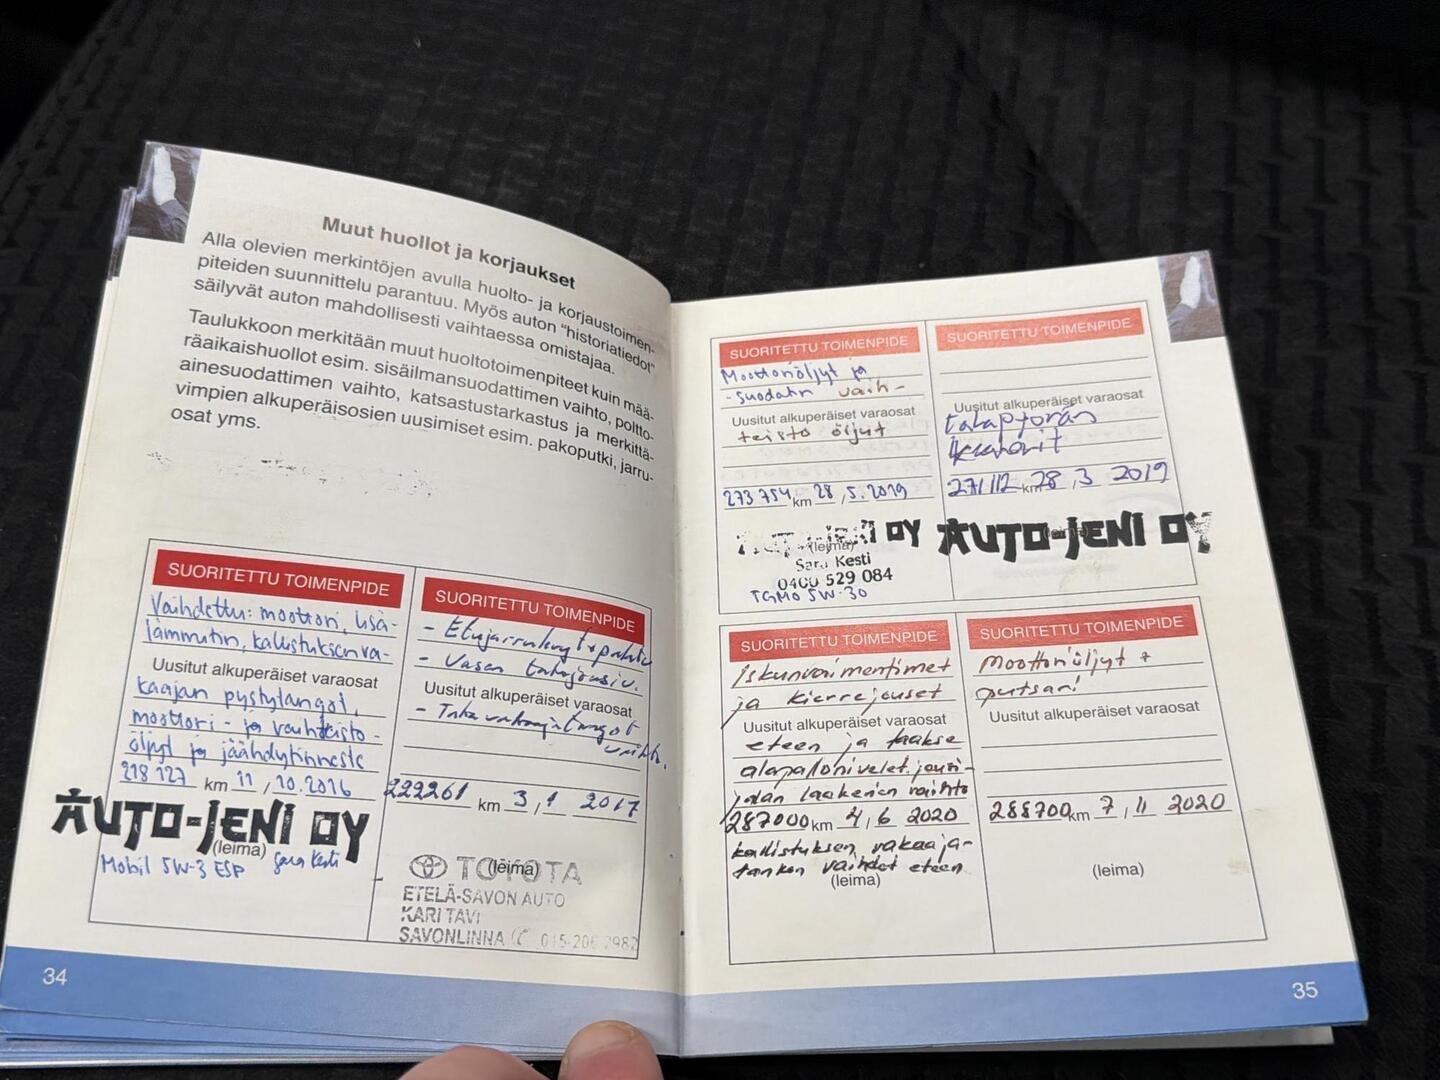 Muut huollot ja korjaukset
Alla olevien merkintöjen avulla huolto- ja korjaustoimen-
piteiden suunnittelu parantuu. Myös auton "historiatiedot"
säilyvät auton mahdollisesti vaihtaessa omistajaa.
Taulukkoon merkitään muut huoltotoimenpiteet kuin mää-
räaikaishuollot esim. sisäilmansuodattimen vaihto, poltto-
ainesuodattimen vaihto, katsastustarkastus ja merkittä-
vimpien alkuperäisosien uusimiset esim. pakoputki, jarru-
osat yms.
SUORITETTU TOIMENPIDE
Vaihdettu: moottori, lisä-
lämmitin, kallistuksenva-
Uusitut alkuperäiset varaosat
kaajan pystytangot,
moottori- ja vaihteisto-
öljyt ja jäähdytinneste
218 127 km 11, 10.2016
AUTO-JENI OY
(leima) Sara Kesti
Mobil 5W-3 ESP
SUORITETTU TOIMENPIDE
- Etujarrulevyt+palat
- Vasen takajousi
Uusitut alkuperäiset varaosat
- Takavakaajatangot
222261 km 3, 1 2017
(leima)
TOYOTA
ETELÄ-SAVON AUTO
KARI TAVI
SAVONLINNA 015-206 2982
34
SUORITETTU TOIMENPIDE
Moottoriöljyt ja
-suodatin vaih-
Uusitut alkuperäiset varaosat
teisto öljyt
273 754 km 28, 5. 2019
OY
(leima)
Sara Kesti
0400 529 084
TGMO 5W-30
SUORITETTU TOIMENPIDE
Uusitut alkuperäiset varaosat
takapyörän
271112 km 28, 3 2019
AUTO-JENI OY
(leima)
SUORITETTU TOIMENPIDE
Iskunvaimentimet
ja kierrejouset
Uusitut alkuperäiset varaosat
eteen ja taakse
alapallonivelet. jousi-
jalan laakerien vaihto
287000 km 4, 6 2020
kallistuksen vakaaja-
tankon vaihdet eteen
(leima)
SUORITETTU TOIMENPIDE
Moottoriöljyt +
putsari
Uusitut alkuperäiset varaosat
288700 km 7, 11 2020
(leima)
35